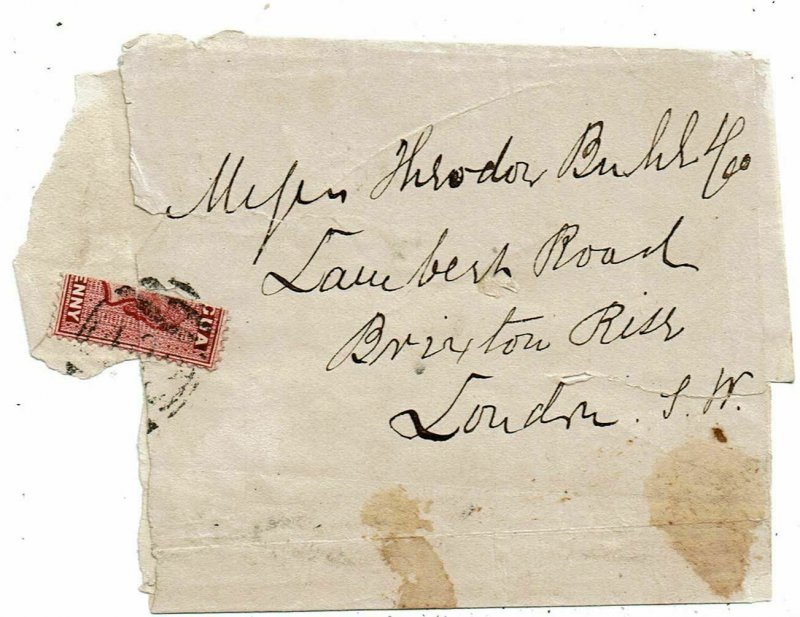 Messrs Theodor Buhl & Co
Lambert Road
Brixton Rise
London. S. W.
ENNY
GUA